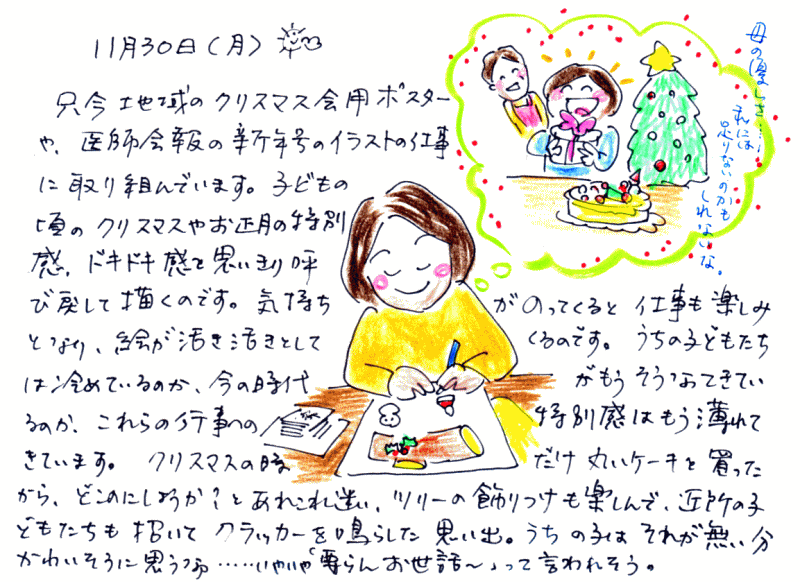 11月30日(月)
只今地域のクリスマス会用ポスター
や、医師会報の新年号のイラストの仕事
に取り組んでいます。子どもの
頃のクリスマスやお正月の特別
感、ドキドキ感を思いきり呼
び戻して描くのです。気持ち がのってくると仕事も楽しみ
となり、絵が活き活きとして くるのです。うちの子どもたち
は冷めているのか、今の時代 がもうそうなってきてい
るのか、これらの行事への 特別感はもう薄れて
きています。クリスマスの時 だけ丸いケーキを買った
から、どこのにしようか?とあれこれ迷い、ツリーの飾りつけも楽しんで、近所の子
どもたちも招いてクラッカーを鳴らした思い出。うちの子はそれが無い分
かわいそうに思うなぁ……いやいや「要らんお世話〜」って言われそう。
母の優しさ…
私には
足りないのかも
しれないな。